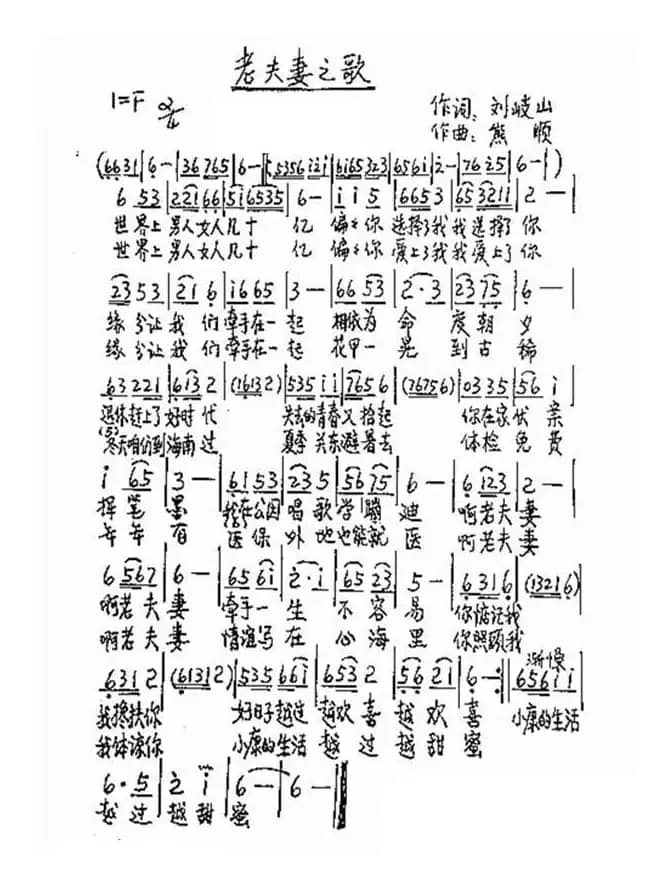 老夫妻之歌
1=F 2/4
作词:刘岐山
作曲:熊 顺
(6631|6—|36 765|6—‖:5356 i2i|6i65 323|656i|2—|76 25|6—|)
6 53|221 66|5i 6535|6—|i i5|6653|653211|2—|
世界上男人女人几十 亿 偏々你 选择了我我选择了你
世界上男人女人几十 亿 偏々你 爱上了我我爱上了你
23 53|21 6|i6 65|3—|66 53|2·3|23 75|6—|
缘分让我 们牵手在一 起 相依为 命 度朝 夕
缘分让我 们牵手在一 起 花甲一 晃 到古 稀
63 221|613 2|(1613 2)|535 i i|765 6|(7675 6)|03 35|56 i|
退休赶上了好时 代 失去的青春又拾起 你在家伏 案
寒天咱们到海南过 夏季关东避暑去 体检免 费
i 65|3—|61 53|23 5|56 75|6—|6 123|2—|
挥笔 墨 我在公园 唱歌学蹦 迪 啊老夫 妻
年年 有 医保 外地也能就 医 啊老夫 妻
6 567|6—|65 6i|2·i|65 23|5—|631 6|(1321 6)|
啊老夫 妻 牵手一 生 不容 易 你惦记我
啊老夫 妻 情谊写 在 心海 里 你照顾我
渐慢
631 2|(6131 2)|535 66i|653 2|56 21|6—:‖656i i|
我搀扶你 好日子越过 越欢 喜 越欢 喜 小康的生活
我体谅你 小康的生活 越过 越甜 蜜
6·5|2 i|6—|6—‖
越过越甜 蜜